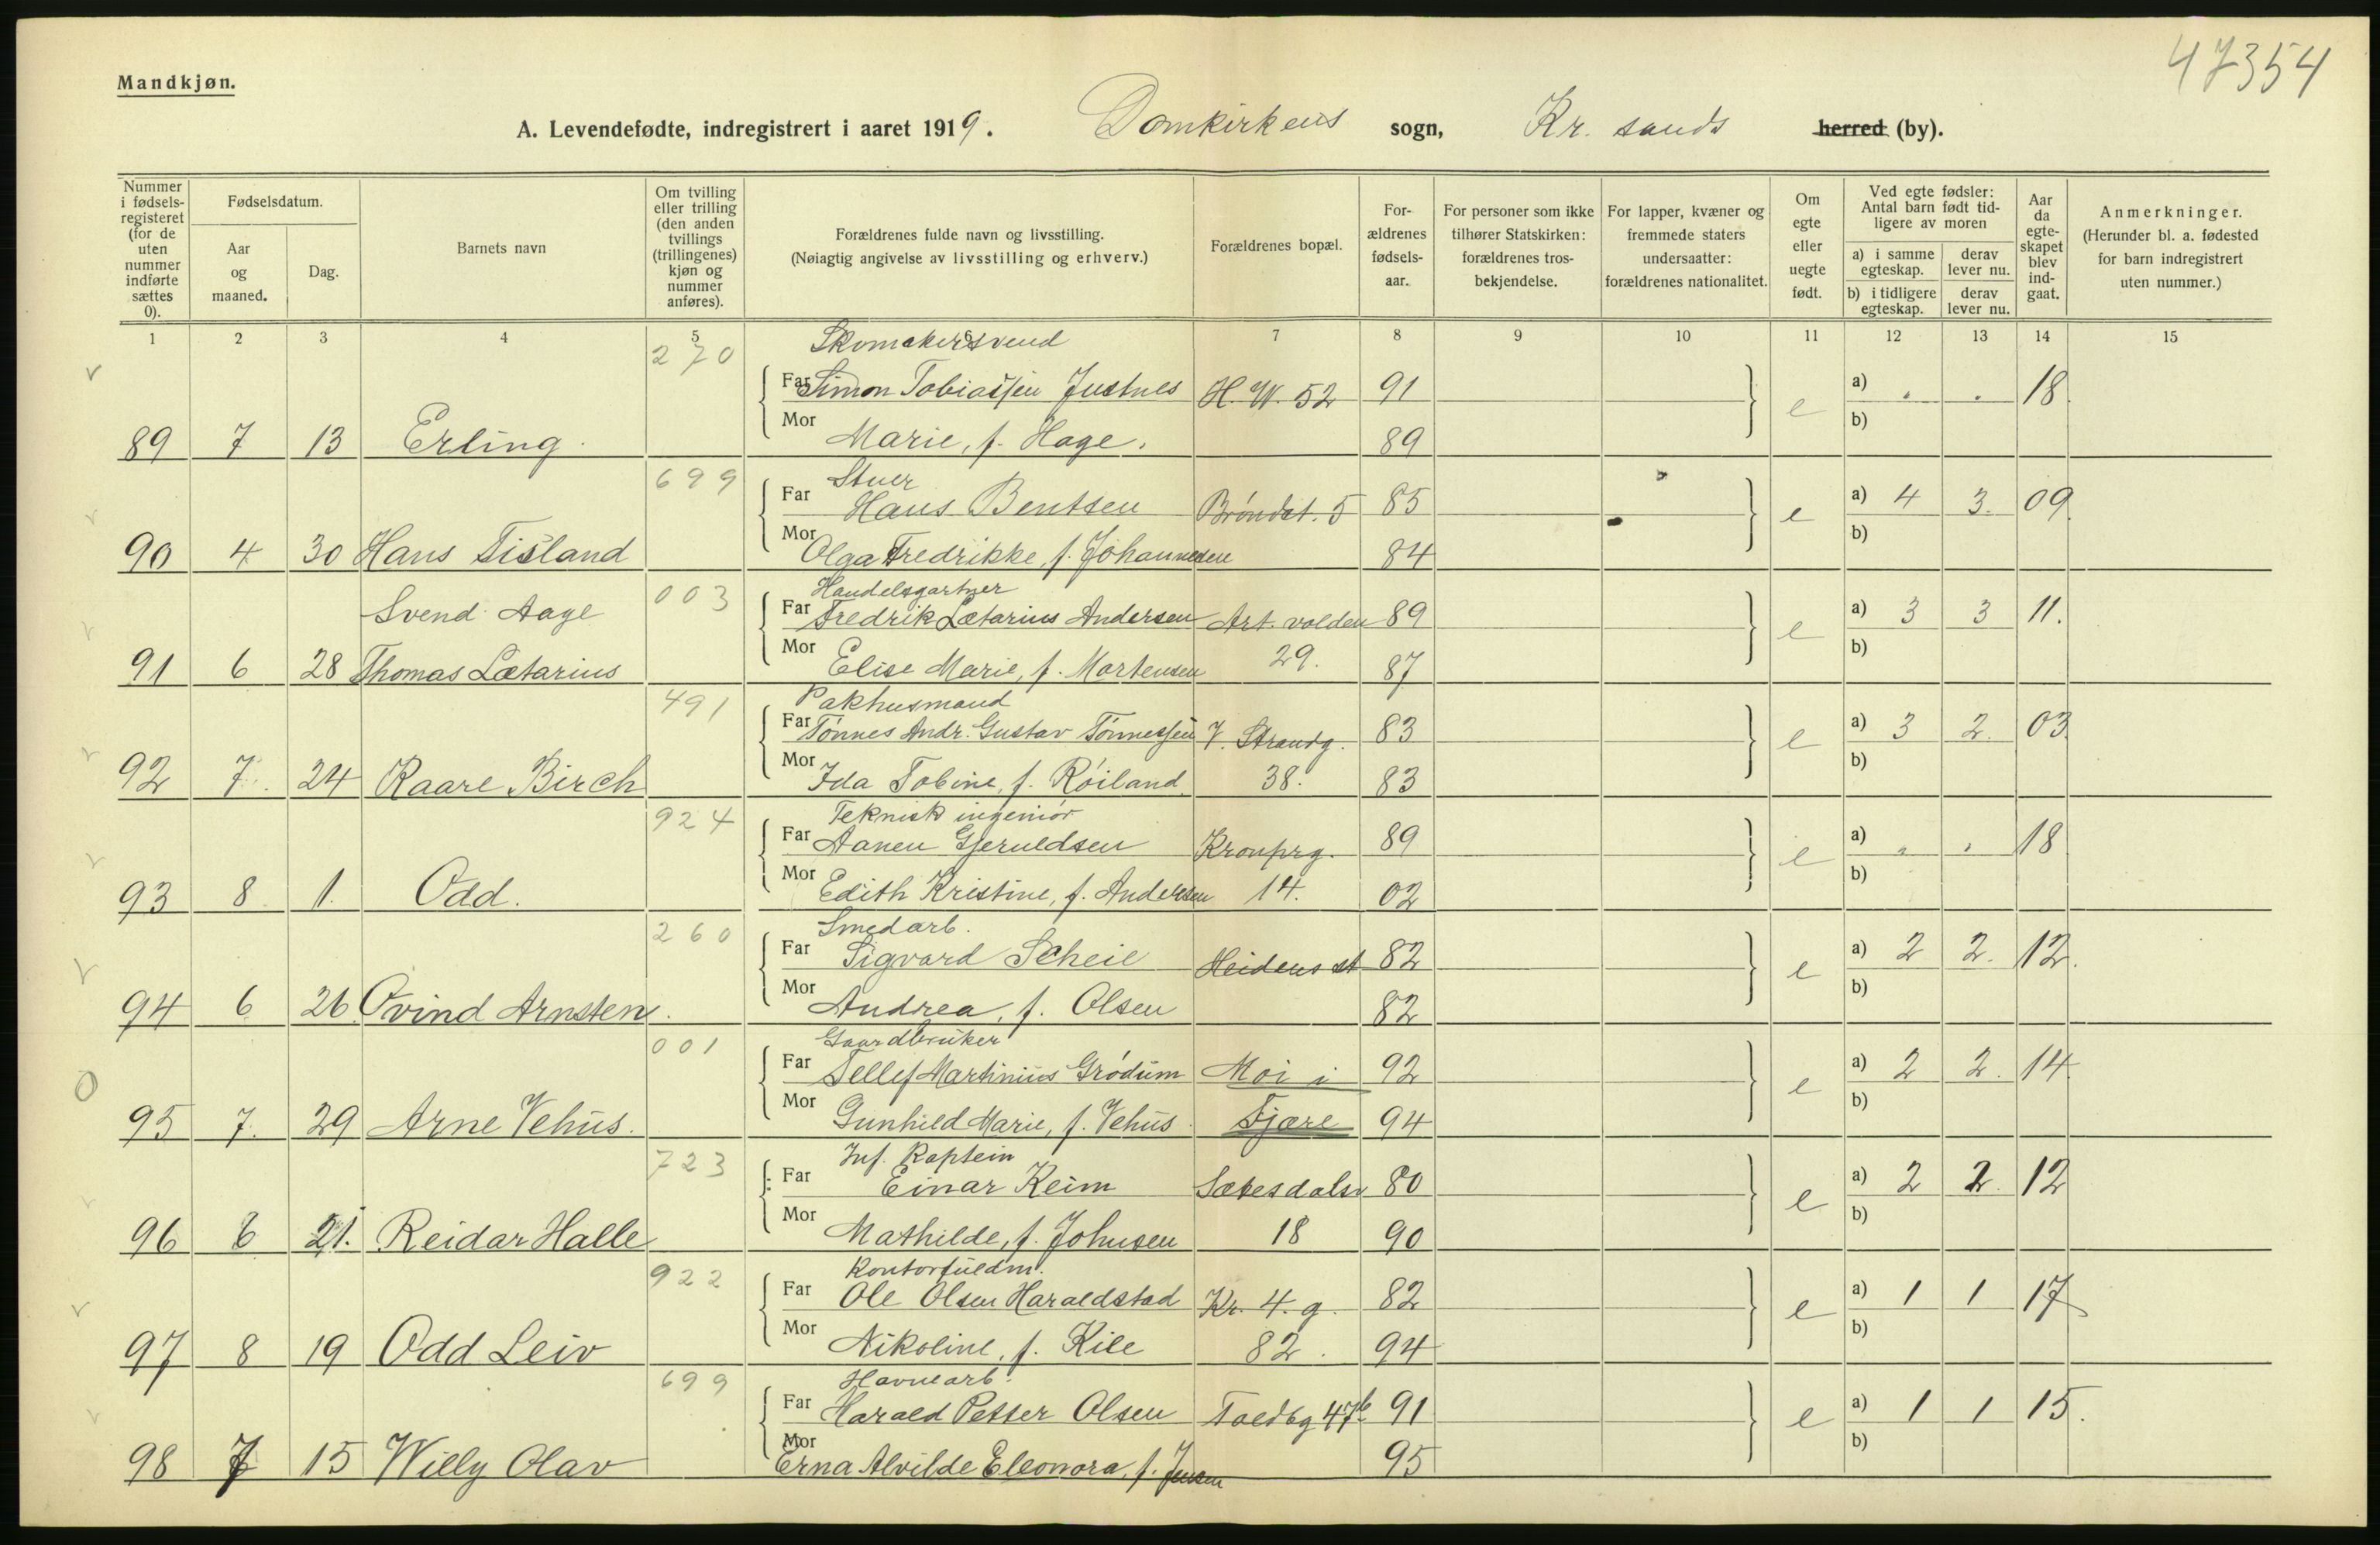 47354
Mandkjøn.
A. Levendefødte, indregistrert i aaret 1919. Domkirkens sogn, Kr. sands herred (by).
Nummer i fødsels-registeret (for de uten nummer indførte sættes 0).
Fødselsdatum.
Aar og maaned.
Dag.
Barnets navn
Om tvilling eller trilling (den anden tvillings (trillingenes) kjøn og nummer anføres).
Forældrenes fulde navn og livsstilling.
(Nøiagtig angivelse av livsstilling og erhverv.)
Forældrenes bopæl.
For-ældrenes fødsels-aar.
For personer som ikke tilhører Statskirken: forældrenes tros-bekjendelse.
For lapper, kvæner og fremmede staters undersaatter: forældrenes nationalitet.
Om egte eller uegte født.
Ved egte fødsler: Antal barn født tid-ligere av moren
a) i samme egteskap. derav lever nu.
b) i tidligere egteskap. derav lever nu.
Aar da egte-skapet blev ind-gaat.
Anmerkninger.
(Herunder bl. a. fødested for barn indregistrert uten nummer.)
1 2 3 4 5 6 7 8 9 10 11 12 13 14 15
270 Skomakersvend
Far Simon Tobiassen Justnes H. W. 52 91 e a) . . 18
89 7 13 Erling. Mor Marie, f. Hage. 89 b)
699 Stuer
Far Hans Bentsen Brøndst. 5 85 e a) 4 3. 09.
90 4 30 Hans Tisland Mor Olga Fredrikke, f. Johannesen 84 b)
003 Handelsgartner
Svend Aage Far Fredrik Lætarius Andersen Art. volden 89 e a) 3 3 11.
91 6 28 Thomas Lætarius Mor Elise Marie, f. Mortensen 29. 87 b)
491 Pakhusmand
Far Tønnes Andr. Gustav Tønnessen V. Strandg. 83 e a) 3 2. 03.
92 7. 24 Kaare Birch Mor Ida Tobine, f. Røiland 38. 83 b)
924 Teknisk ingeniør
Far Aanen Gjeruldsen Kronprg. 89 e a) . . 18
93 8 1. Odd. Mor Edith Kristine, f. Andersen 14. 02 b)
260 Smedarb.
Far Sigvard Scheie Heidens st 82 e a) 2 2. 12.
94 6 26 Øvind Arnsten. Mor Andrea, f. Olsen 82 b)
001 Gaardbruker
Far Tellef Martinius Grødum Moi i 92 e a) 2 2. 14.
95 7. 29 Arne Vehus. Mor Gunhild Marie, f. Vehus Fjære 94 b)
723 Inf. Kaptein
Far Einar Keim Sætesdalsv 80 e a) 2 2. 12
96 6 21. Reidar Halle Mor Mathilde, f. Johnsen 18 90 b)
922 Kontorfuldm.
Far Ole Olsen Haraldstad Kr. 4. g. 82 e a) 1 1 17
97 8 19 Odd Leiv Mor Nikoline, f. Kile 82. 94 b)
699 Havnearb.
Far Harald Petter Olsen Toldbg 47b 91 e a) 1 1 15.
98 7 15 Willy Olav Mor Erna Alvilde Eleonora, f. Jensen 95 b)